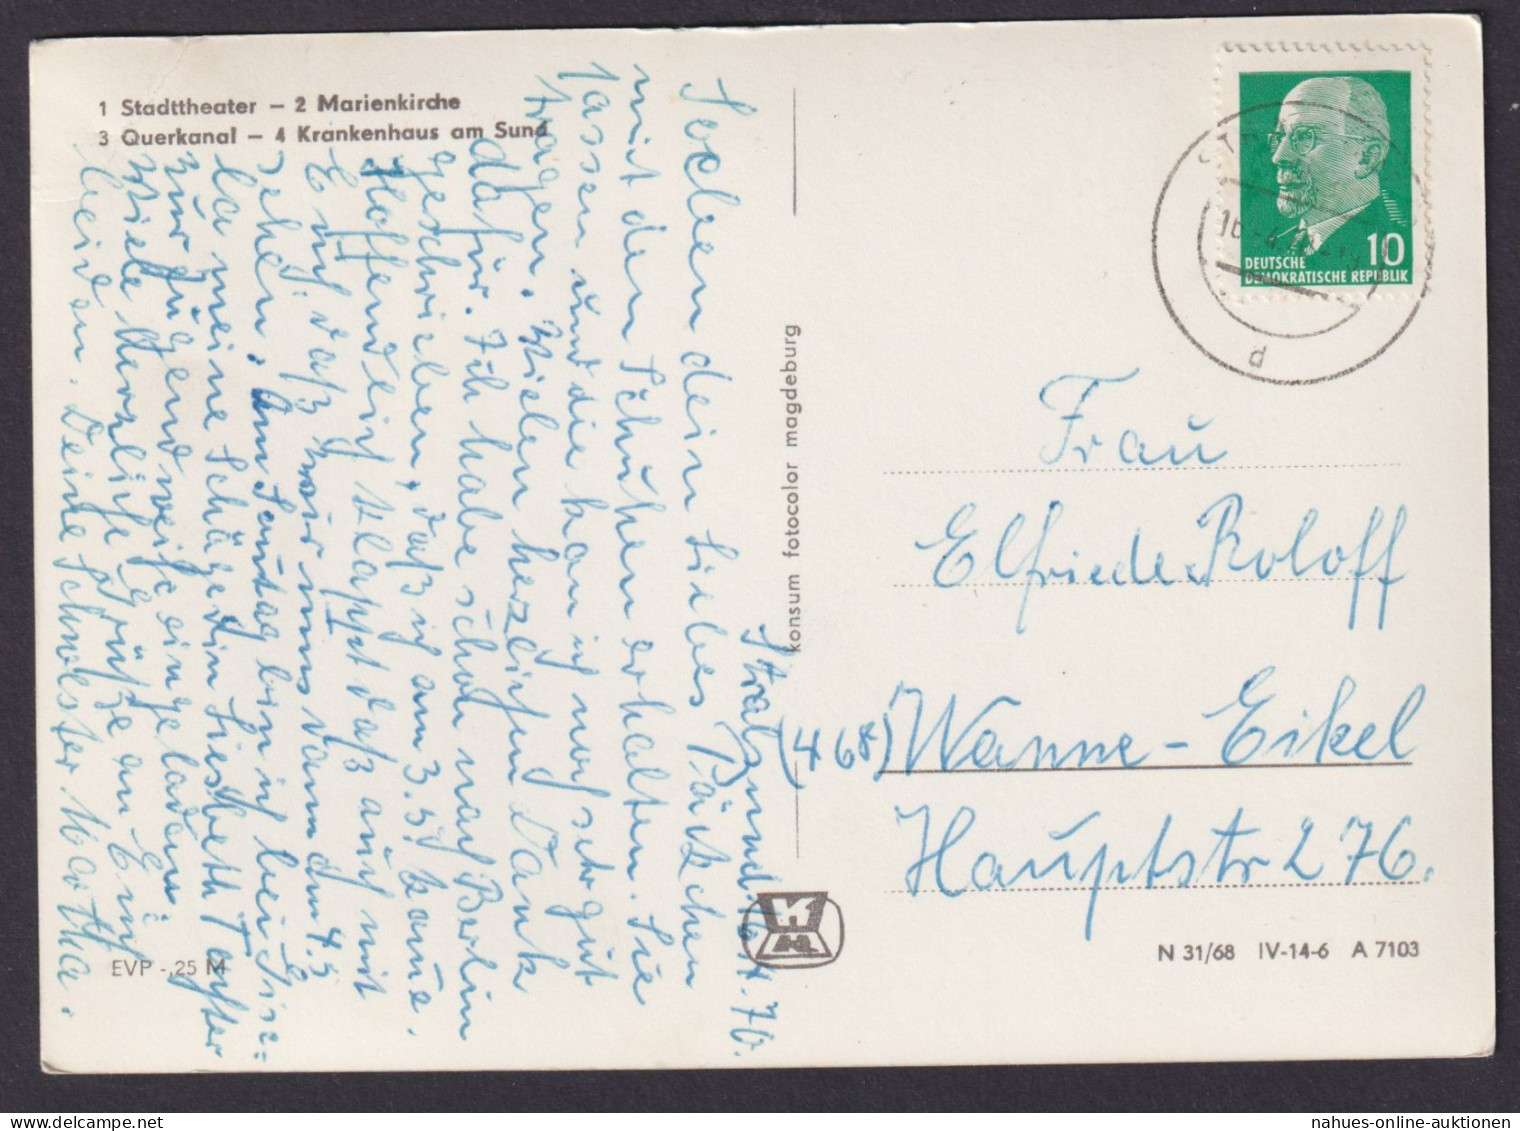 1 Stadttheater – 2 Marienkirche
3 Querkanal – 4 Krankenhaus am Sund
Stralsund. 16.4.70.
Soeben dein liebes Päckchen
mit den Schuhen erhalten. Sie
passen und die kann ich noch sehr gut
tragen. Vielen herzlichen Dank
dafür. Ich habe schon nach Berlin
geschrieben, daß ich am 3.5. kome.
Hoffendlich klappt daß auch mit
Euch, daß wir uns dann am 4.5
sehen. Am Sonntag bin ich bei
la meine Schügerin Liesbeth Tochter
zur Jugendweihe eingeladen.
Viele herzliche Grüße an Euch
beiden. Deine Schwester Martha.
EVP -,25 M
konsum fotocolor magdeburg
DEUTSCHE
DEMOKRATISCHE REPUBLIK
10
d
Frau
Elfriede Roloff
(468) Wanne-Eikel
Hauptstr 276.
N 31/68 IV-14-6 A 7103
nahues-online-auktionen